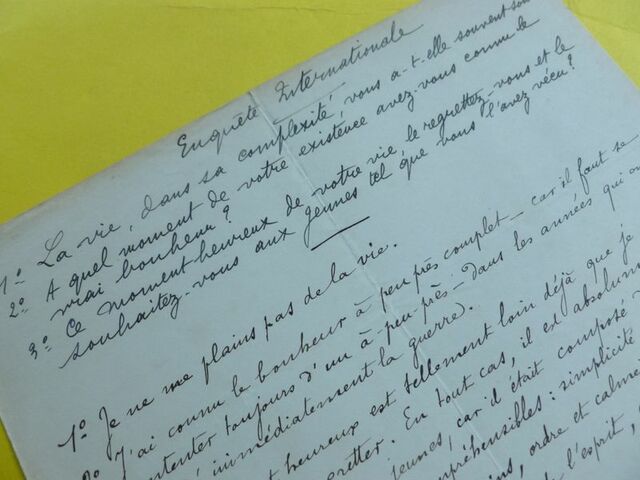 Enquête Internationale
1º La vie, dans sa complexité, vous a-t-elle souvent
2º A quel moment de votre existence avez-vous connu le
vrai bonheur?
3º Ce moment heureux de votre vie, le regrettez-vous et le
souhaitez-vous aux jeunes tel que vous l'avez vécu?
1º Je ne me plains pas de la vie.
2º J'ai connu le bonheur à peu près complet - car il faut se
contenter toujours d'un à peu près - dans les années qui
immédiatement la guerre).
heureux est tellement loin déjà que je
regretter. En tout cas, il est absolument
jeunes, car il était composé
compréhensibles: simplicité
ordre et calme
de l'esprit,